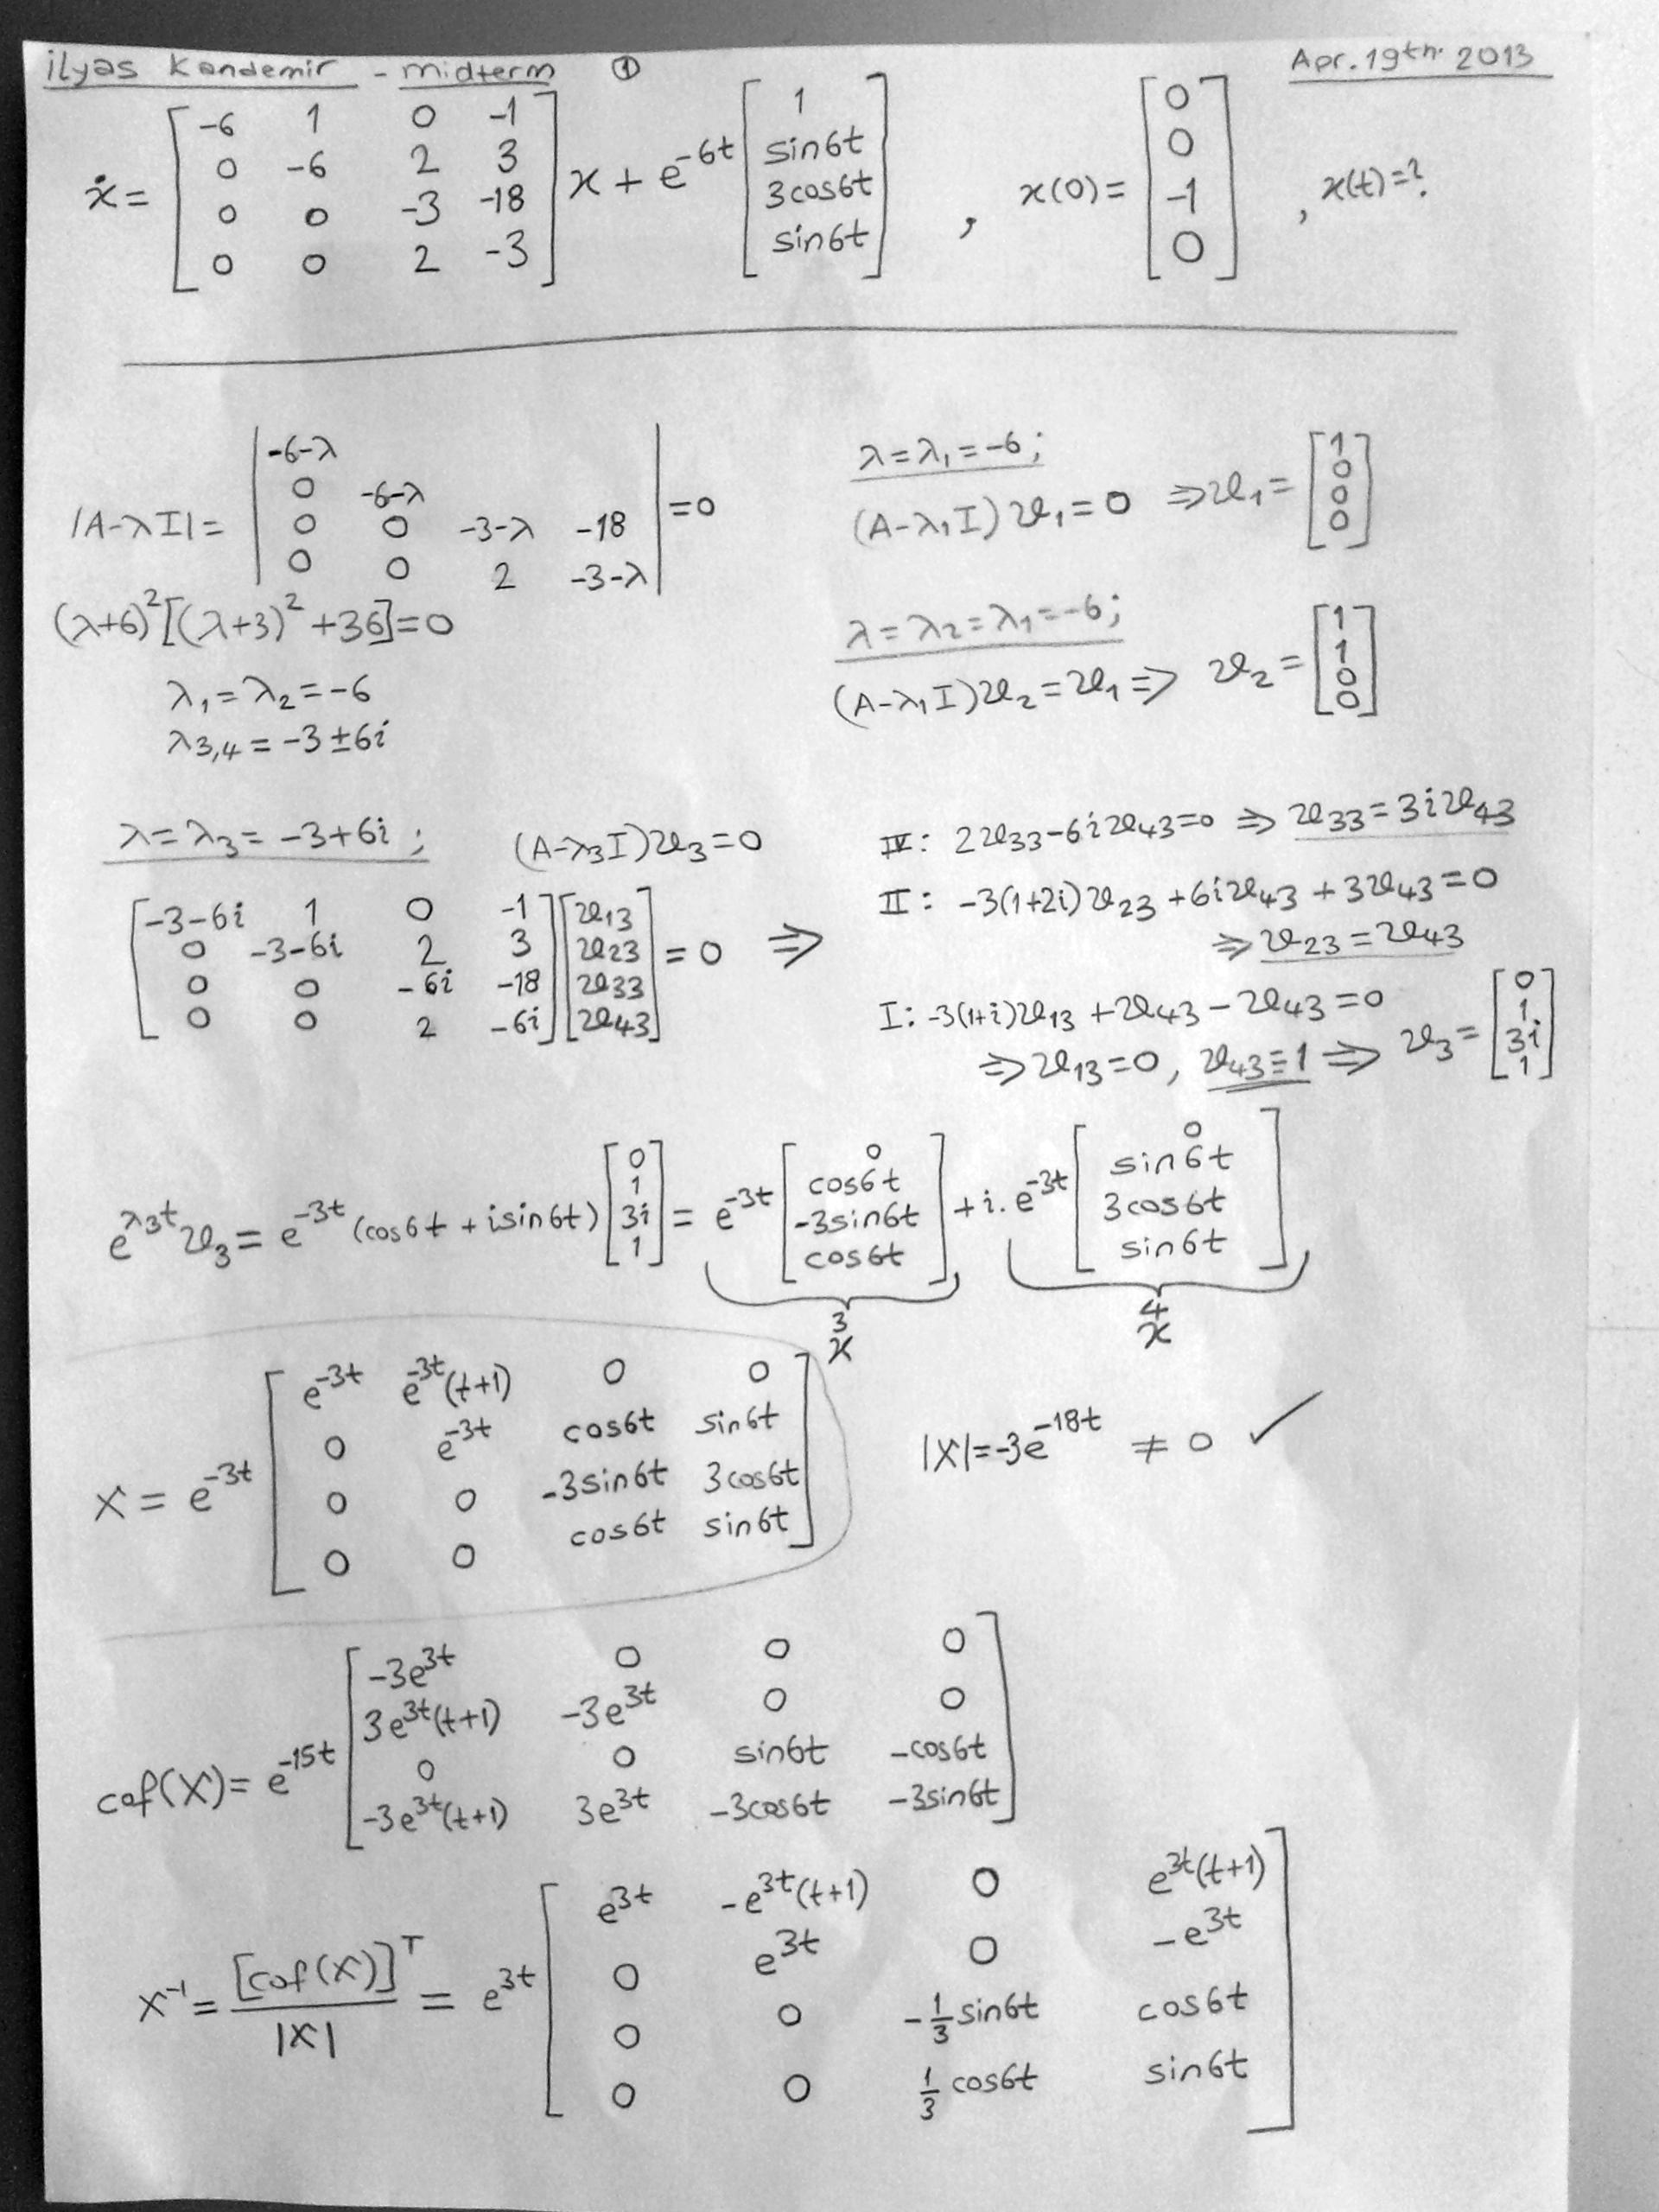 ilyas Kandemir - midterm ① Apr. 19th. 2013
ẋ = [-6 1 0 -1; 0 -6 2 3; 0 0 -3 -18; 0 0 2 -3] x + e^-6t [1; sin6t; 3cos6t; sin6t] , x(0) = [0; 0; -1; 0] , x(t)=?
|A-λI| = |-6-λ; 0 -6-λ; 0 0 -3-λ -18; 0 0 2 -3-λ| = 0
(λ+6)²[(λ+3)²+36]=0
λ₁=λ₂=-6
λ₃,₄=-3±6i
λ=λ₁=-6;
(A-λ₁I)v₁=0 ⇒ v₁= [1; 0; 0; 0]
λ=λ₂=λ₁=-6;
(A-λ₁I)v₂=v₁ ⇒ v₂= [1; 1; 0; 0]
λ=λ₃=-3+6i; (A-λ₃I)v₃=0
[-3-6i 1 0 -1; 0 -3-6i 2 3; 0 0 -6i -18; 0 0 2 -6i] [v₁₃; v₂₃; v₃₃; v₄₃] = 0 ⇒
IV: 2v₃₃-6iv₄₃=0 ⇒ v₃₃=3iv₄₃
II: -3(1+2i)v₂₃+6iv₄₃+3v₄₃=0
⇒ v₂₃=v₄₃
I: -3(1+i)v₁₃+v₄₃-v₄₃=0
⇒ v₁₃=0, v₄₃=1 ⇒ v₃= [0; 1; 3i; 1]
e^λ₃t v₃ = e^-3t (cos6t+isin6t) [0; 1; 3i; 1] = e^-3t [0; cos6t; -3sin6t; cos6t] + i. e^-3t [0; sin6t; 3cos6t; sin6t]
3 4
x x
X = e^-3t [e^-3t e^-3t(t+1) 0 0; 0 e^-3t cos6t sin6t; 0 0 -3sin6t 3cos6t; 0 0 cos6t sin6t] |X|=-3e^-18t ≠ 0 ✓
cof(X) = e^-15t [-3e^3t 0 0 0; 3e^3t(t+1) -3e^3t 0 0; 0 0 sin6t -cos6t; -3e^3t(t+1) 3e^3t -3cos6t -3sin6t]
X⁻¹ = [cof(X)]^T / |X| = e^3t [e^3t -e^3t(t+1) 0 e^3t(t+1); 0 e^3t 0 -e^3t; 0 0 -1/3 sin6t cos6t; 0 0 1/3 cos6t sin6t]